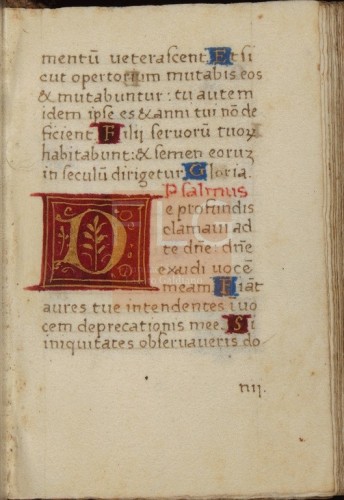 mentũ veterascent. Et si
cut opertorium mutabis eos
& mutabuntur: tu autem
idem ipse es & anni tui nõ de
ficient. Filij servorũ tuoꝝ
habitabunt: & semen eoruz
in seculũ dirigetur. Gloria.
Psalmus
De profundis
clamavi ad
te dñe: dñe
exaudi vocẽ
meam. Fiãt
aures tue intendentes i uo
cem deprecationis mee. Si
iniquitates observaveris do